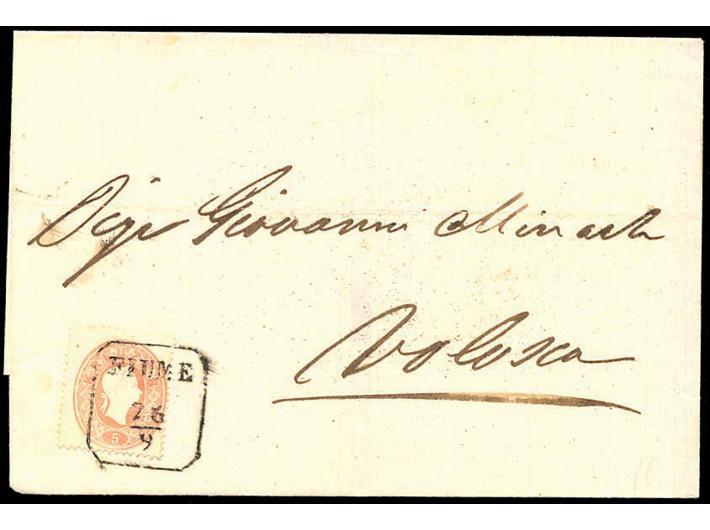 Sigr Giovanni Minach
Volosca
FIUME
28
9
5